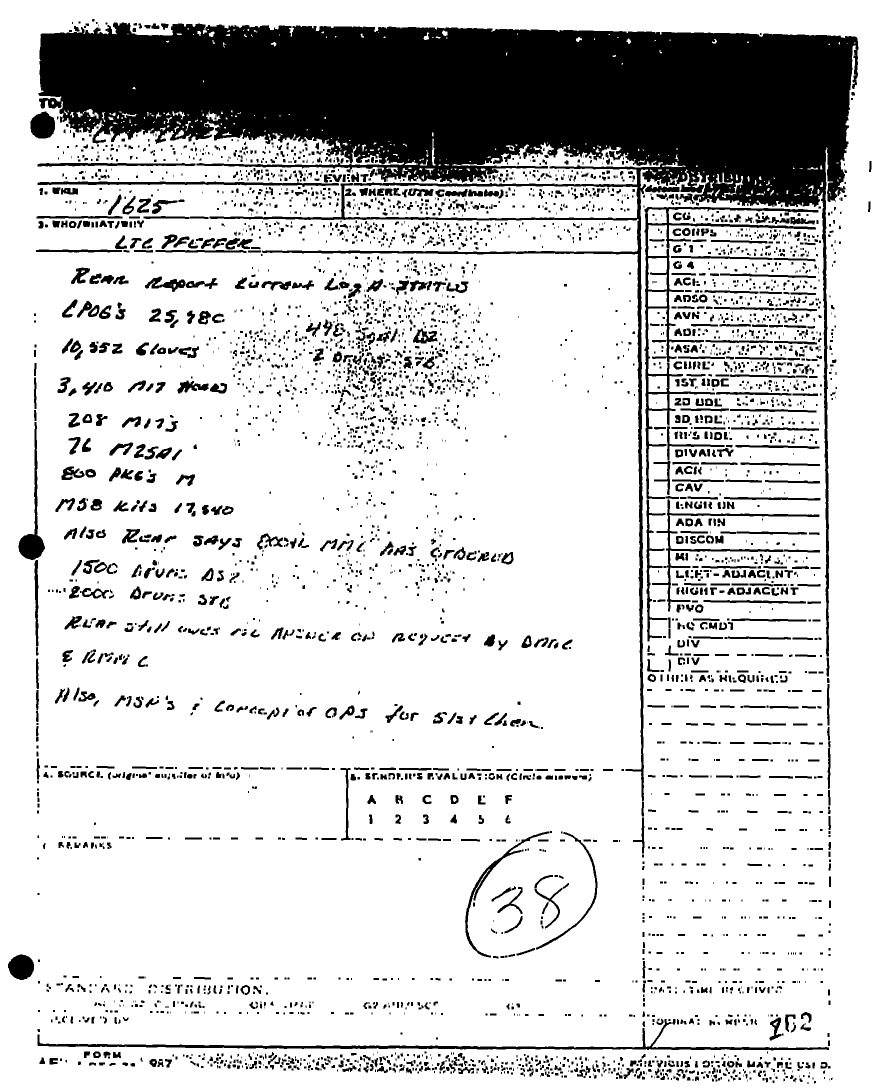 TO:
EVENT
1. WHEN
1625
2. WHERE (UTM Coordinates)
3. WHO/WHAT/WHY
LTC PFEFFER
REAR Report Current Log A STATUS
CPOG's 25,980
10,552 Gloves
2 Drums STB
3,410 M17 HOODS
208 M17's
76 M25A1
800 PKG's M
M58 Kits 17,540
Also REAR SAYS MMC HAS ORDERED
1500 Drums DS2
2000 Drums STB
REAR still owes me ANSWER on request by
& RMMC
Also, MSN's & Concept of OPS for 51st Chem.
CG
CORPS
G 1
G 4
ACE
ADSO
AVN
ASA
1ST BDE
2D BDE
3D BDE
RES BDE
DIVARTY
ACR
CAV
ENGR BN
ADA BN
DISCOM
MI
LEFT-ADJACENT
RIGHT-ADJACENT
PMO
HQ CMDT
DIV
DIV
OTHER AS REQUIRED
4. SOURCE (original supplier of info)
5. SENDER'S EVALUATION (Circle answers)
A B C D E F
1 2 3 4 5 6
REMARKS
38
STANDARD DISTRIBUTION.
RECEIVED BY
DATE/TIME RECEIVED
JOURNAL NUMBER 102
FORM
987
PREVIOUS EDITION MAY BE USED.